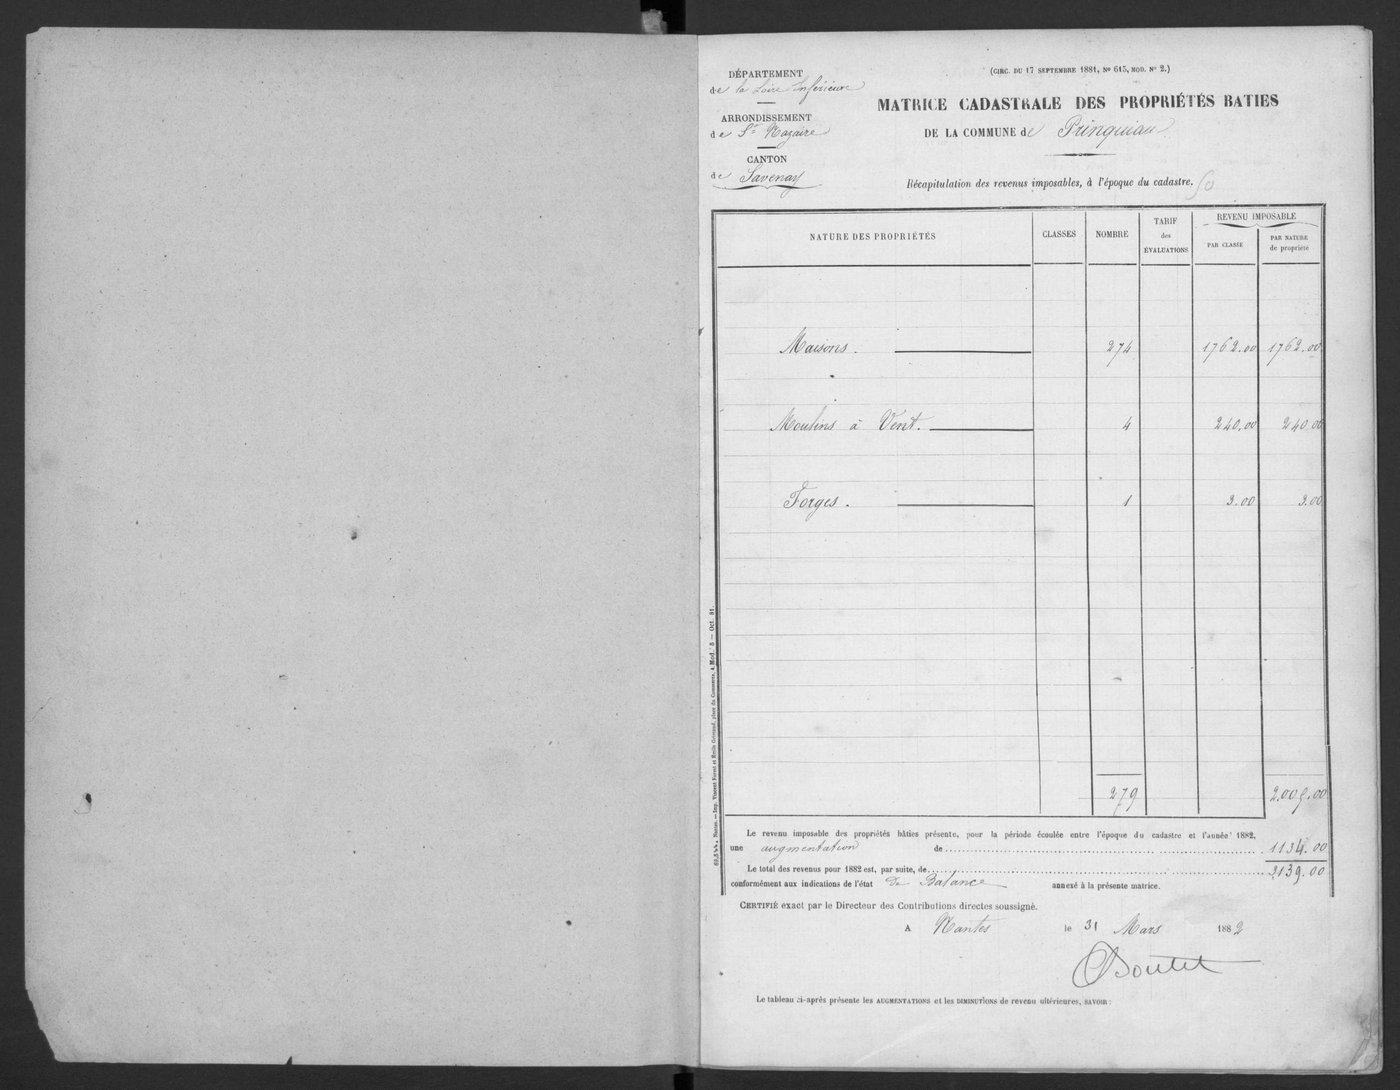 DÉPARTEMENT
de la Loire Inférieure
ARRONDISSEMENT
de St Nazaire
CANTON
de Savenay
(CIRC. DU 17 SEPTEMBRE 1881, No 615, MOD. No 2.)
MATRICE CADASTRALE DES PROPRIÉTÉS BATIES
DE LA COMMUNE de Prinquiau
Récapitulation des revenus imposables, à l'époque du cadastre.
NATURE DES PROPRIÉTÉS CLASSES NOMBRE TARIF des ÉVALUATIONS REVENU IMPOSABLE
PAR CLASSE PAR NATURE de propriété
Maisons. 274 1762.00 1762.00
Moulins à Vent. 4 240.00 240.00
Forges. 1 3.00 3.00
279 2.005.00
Le revenu imposable des propriétés bâties présente, pour la période écoulée entre l'époque du cadastre et l'année 1882,
une augmentation de 1134.00
Le total des revenus pour 1882 est, par suite, de 3139.00
conformément aux indications de l'état de Balance annexé à la présente matrice.
CERTIFIÉ exact par le Directeur des Contributions directes soussigné.
A Nantes le 31 Mars 1882
Boutet
Le tableau ci-après présente les AUGMENTATIONS et les DIMINUTIONS de revenu ultérieures, SAVOIR :